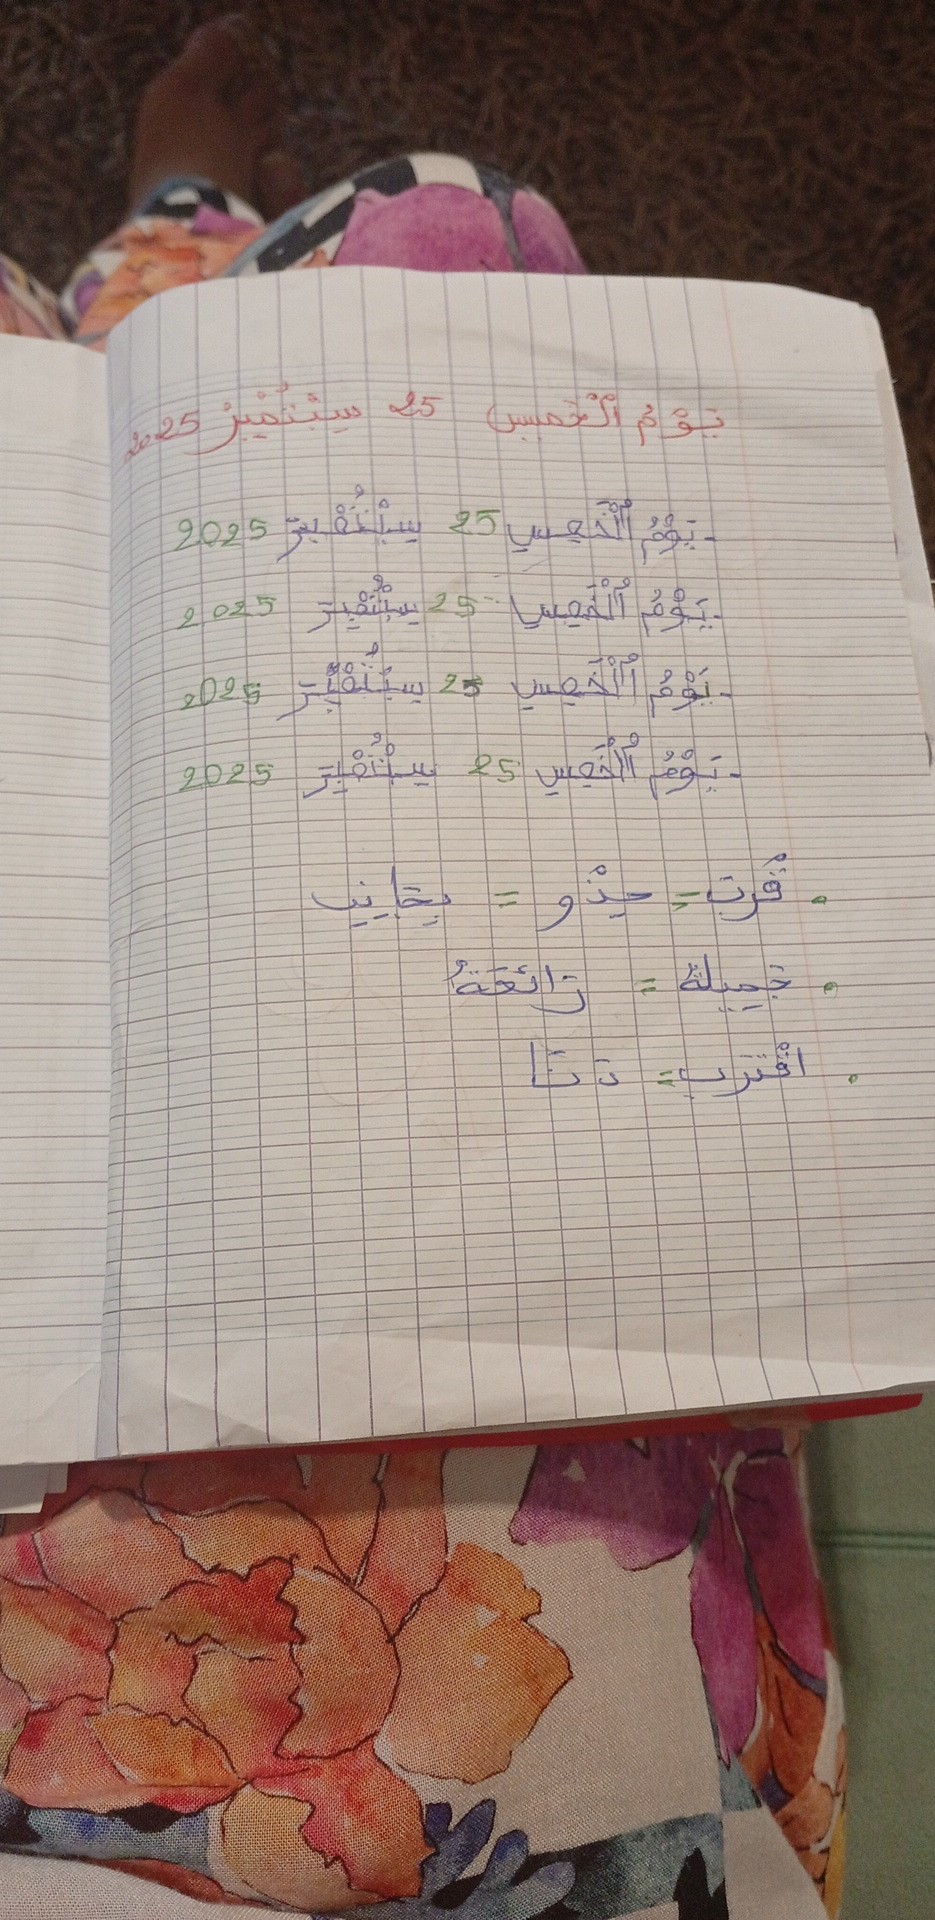 يَوْمُ ٱلْخَمِيسِ 25 سِبْتَمْبِرْ 2025
- يَوْمُ ٱلْخَمِيسِ 25 سِبْتَمْبِرَ 2025
- يَوْمُ ٱلْخَمِيسِ 25 سِبْتُمْبِرَ 2025
- يَوْمُ ٱلْخَمِيسِ 25 سِبْتُمْبِرَ 2025
- يَوْمُ ٱلْخَمِيسِ 25 سِبْتُمْبِرَ 2025
. قُرْبَ = حِذْو = بِجَانِبِ
. جَمِيلَةٌ = رَائِعَةٌ
. اقْتَرَبَ = دَنَا